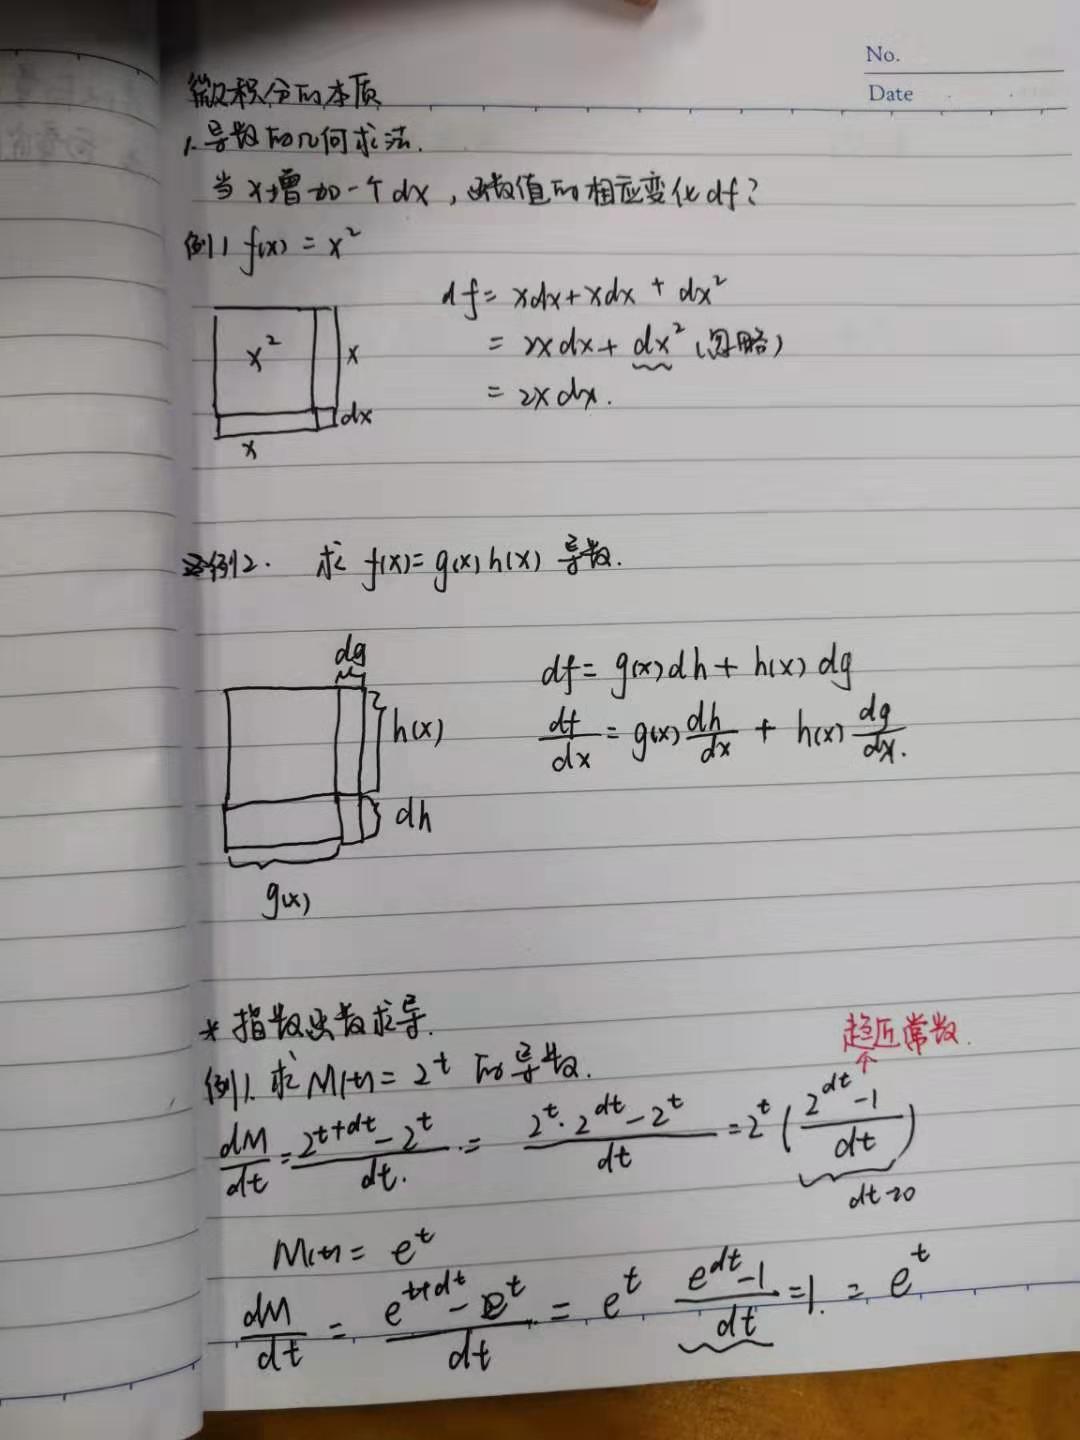 No.
Date
微积分的本质
1. 导数的几何求法.
当 x 增加一个 dx , 函数值的相应变化 df ?
例1 f(x) = x²
df = xdx + xdx + dx²
= 2xdx + dx² (忽略)
= 2xdx.
x²
x
dx
x
例2. 求 f(x) = g(x)h(x) 导数.
dg
h(x)
dh
g(x)
df = g(x)dh + h(x)dg
df/dx = g(x) dh/dx + h(x) dg/dx.
* 指数函数求导.
趋近常数.
例1. 求 M(t) = 2^t 的导数.
dM/dt = (2^(t+dt) - 2^t)/dt. = (2^t · 2^dt - 2^t)/dt = 2^t ((2^dt - 1)/dt)
dt→0
M(t) = e^t
dM/dt = (e^(t+dt) - e^t)/dt = e^t (e^dt - 1)/dt = 1. = e^t